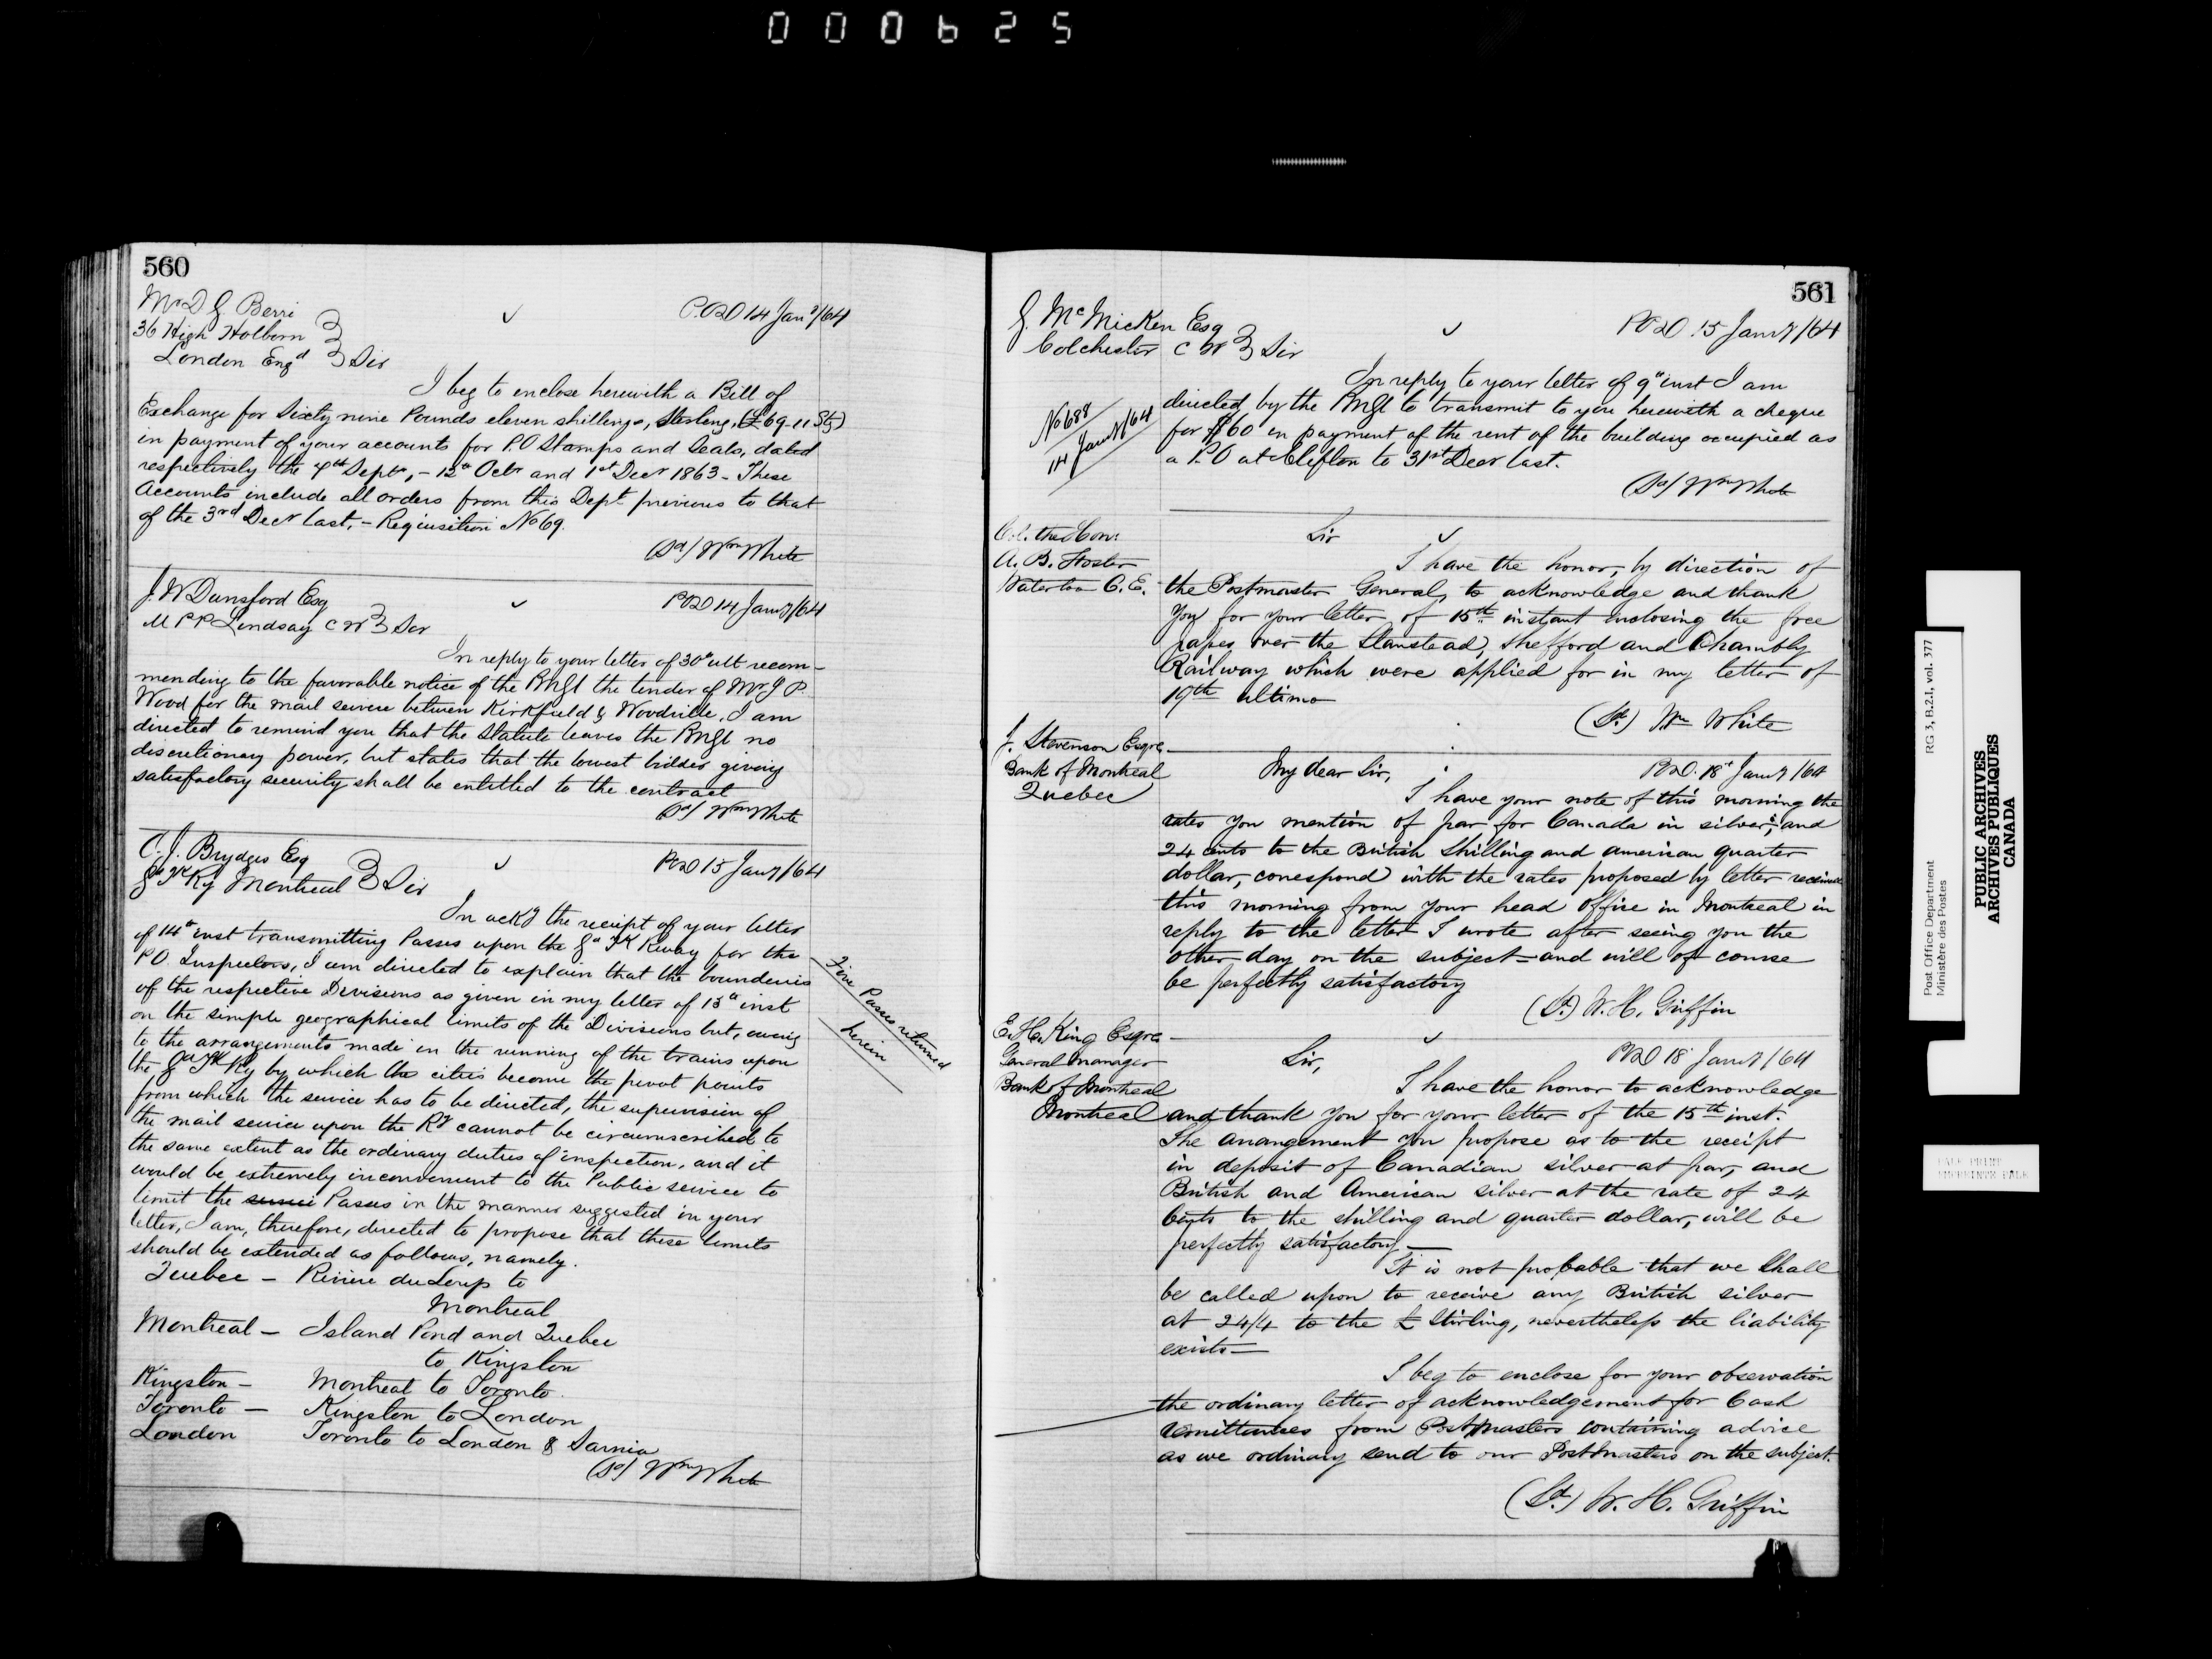 000625
560
Mr D G Berri
36 High Holborn
London Engd Sir
P.O.D 14 Jany/64
I beg to enclose herewith a Bill of
Exchange for Sixty nine Pounds eleven shillings, Sterling, (£69-11 Stg)
in payment of your accounts for P.O Stamps and Seals, dated
respectively the 4th Septr, - 12th Octr and 1st Decr 1863 - These
Accounts include all orders from this Dept previous to that
of the 3rd Decr last, - Requisition No 69.
(Sd) Wm White
J. W Dunsford Esq
M P P Lindsay C W Sir
POD 14 Jany/64
In reply to your letter of 30th ult recom-
mending to the favorable notice of the PMGl the tender of Mr J P.
Wood for the mail service between Kirkfield & Woodville, I am
directed to remind you that the Statute leaves the PMGl no
discretionary power, but states that the lowest bidder giving
satisfactory security shall be entitled to the contract
(Sd) Wm White
C. J. Brydges Esq
Gd Tk Ry Montreal Sir
POD 15 Jany/64
In ackg the receipt of your letter
of 14th inst transmitting Passes upon the Gd Tk Rway for the
P O. Inspectors, I am directed to explain that the bounderies
of the respective Divisions as given in my letter of 13th inst
on the simple geographical limits of the Divisions but, owing
to the arrangements made in the running of the trains upon
the Gd Tk Ry by which the cities become the pivot points
from which the service has to be directed, the supervision of
the mail service upon the Ry cannot be circumscribed to
the same extent as the ordinary duties of inspection, and it
would be extremely inconvenient to the Public service to
limit the service Passes in the manner suggested in your
letter, I am, therefore, directed to propose that these limits
should be extended as follows, namely.
Quebec - Riviere du Loup to
Montreal
Montreal - Island Pond and Quebec
to Kingston
Kingston - Montreal to Toronto.
Toronto - Kingston to London
London Toronto to London & Sarnia
(Sd) Wm White
Five Passes returned
herein
561
G. McMicken Esq
Colchester C W Sir
POD 15 Jany/64
No 688
14 Jany/64
In reply to your letter of 9th inst I am
directed by the PMGl to transmit to you herewith a cheque
for $60 in payment of the rent of the building occupied as
a P.O at Clifton to 31st Decr last.
(Sd) Wm White
Col. the Hon:
A. B. Foster
Waterloo C. E.
Sir
I have the honor, by direction of
the Postmaster General, to acknowledge and thank
you for your letter of 15th instant enclosing the free
passes over the Stanstead, Shefford and Chambly
Railway which were applied for in my letter of
19th ultimo
(Sd.) Wm White
J. Stevenson Esqre
Bank of Montreal
Quebec
My dear Sir,
POD. 18th Jany/64
I have your note of this morning the
rates you mention of par for Canada in silver, and
24 cents to the British Shilling and american quarter
dollar, conespond with the rates proposed by letter received
this morning from your head office in Montreal in
reply to the letter I wrote after seeing you the
other day on the subject - and will of course
be perfectly satisfactory
(Sd.) W. H. Griffin
E. H. King Esqre
General Manager
Bank of Montreal
Montreal
Sir,
POD 18 Jany/64
I have the honor to acknowledge
and thank you for your letter of the 15th inst.
The arrangement you propose as to the receipt
in deposit of Canadian silver at par, and
British and American silver at the rate of 24
Cents to the shilling and quarter dollar, will be
perfectly satisfactory —
It is not probable that we shall
be called upon to receive any British silver
at 24/4 to the £ Stirling, nevertheless the liability
exists —
I beg to enclose for your observation
the ordinary letter of acknowledgement for Cash
remittances from Postmasters containing advice
as we ordinary send to our Postmasters on the subject.
(Sd.) W. H. Griffin
Post Office Department RG 3, B.2.1, vol. 377
Ministère des Postes
PUBLIC ARCHIVES
ARCHIVES PUBLIQUES
CANADA